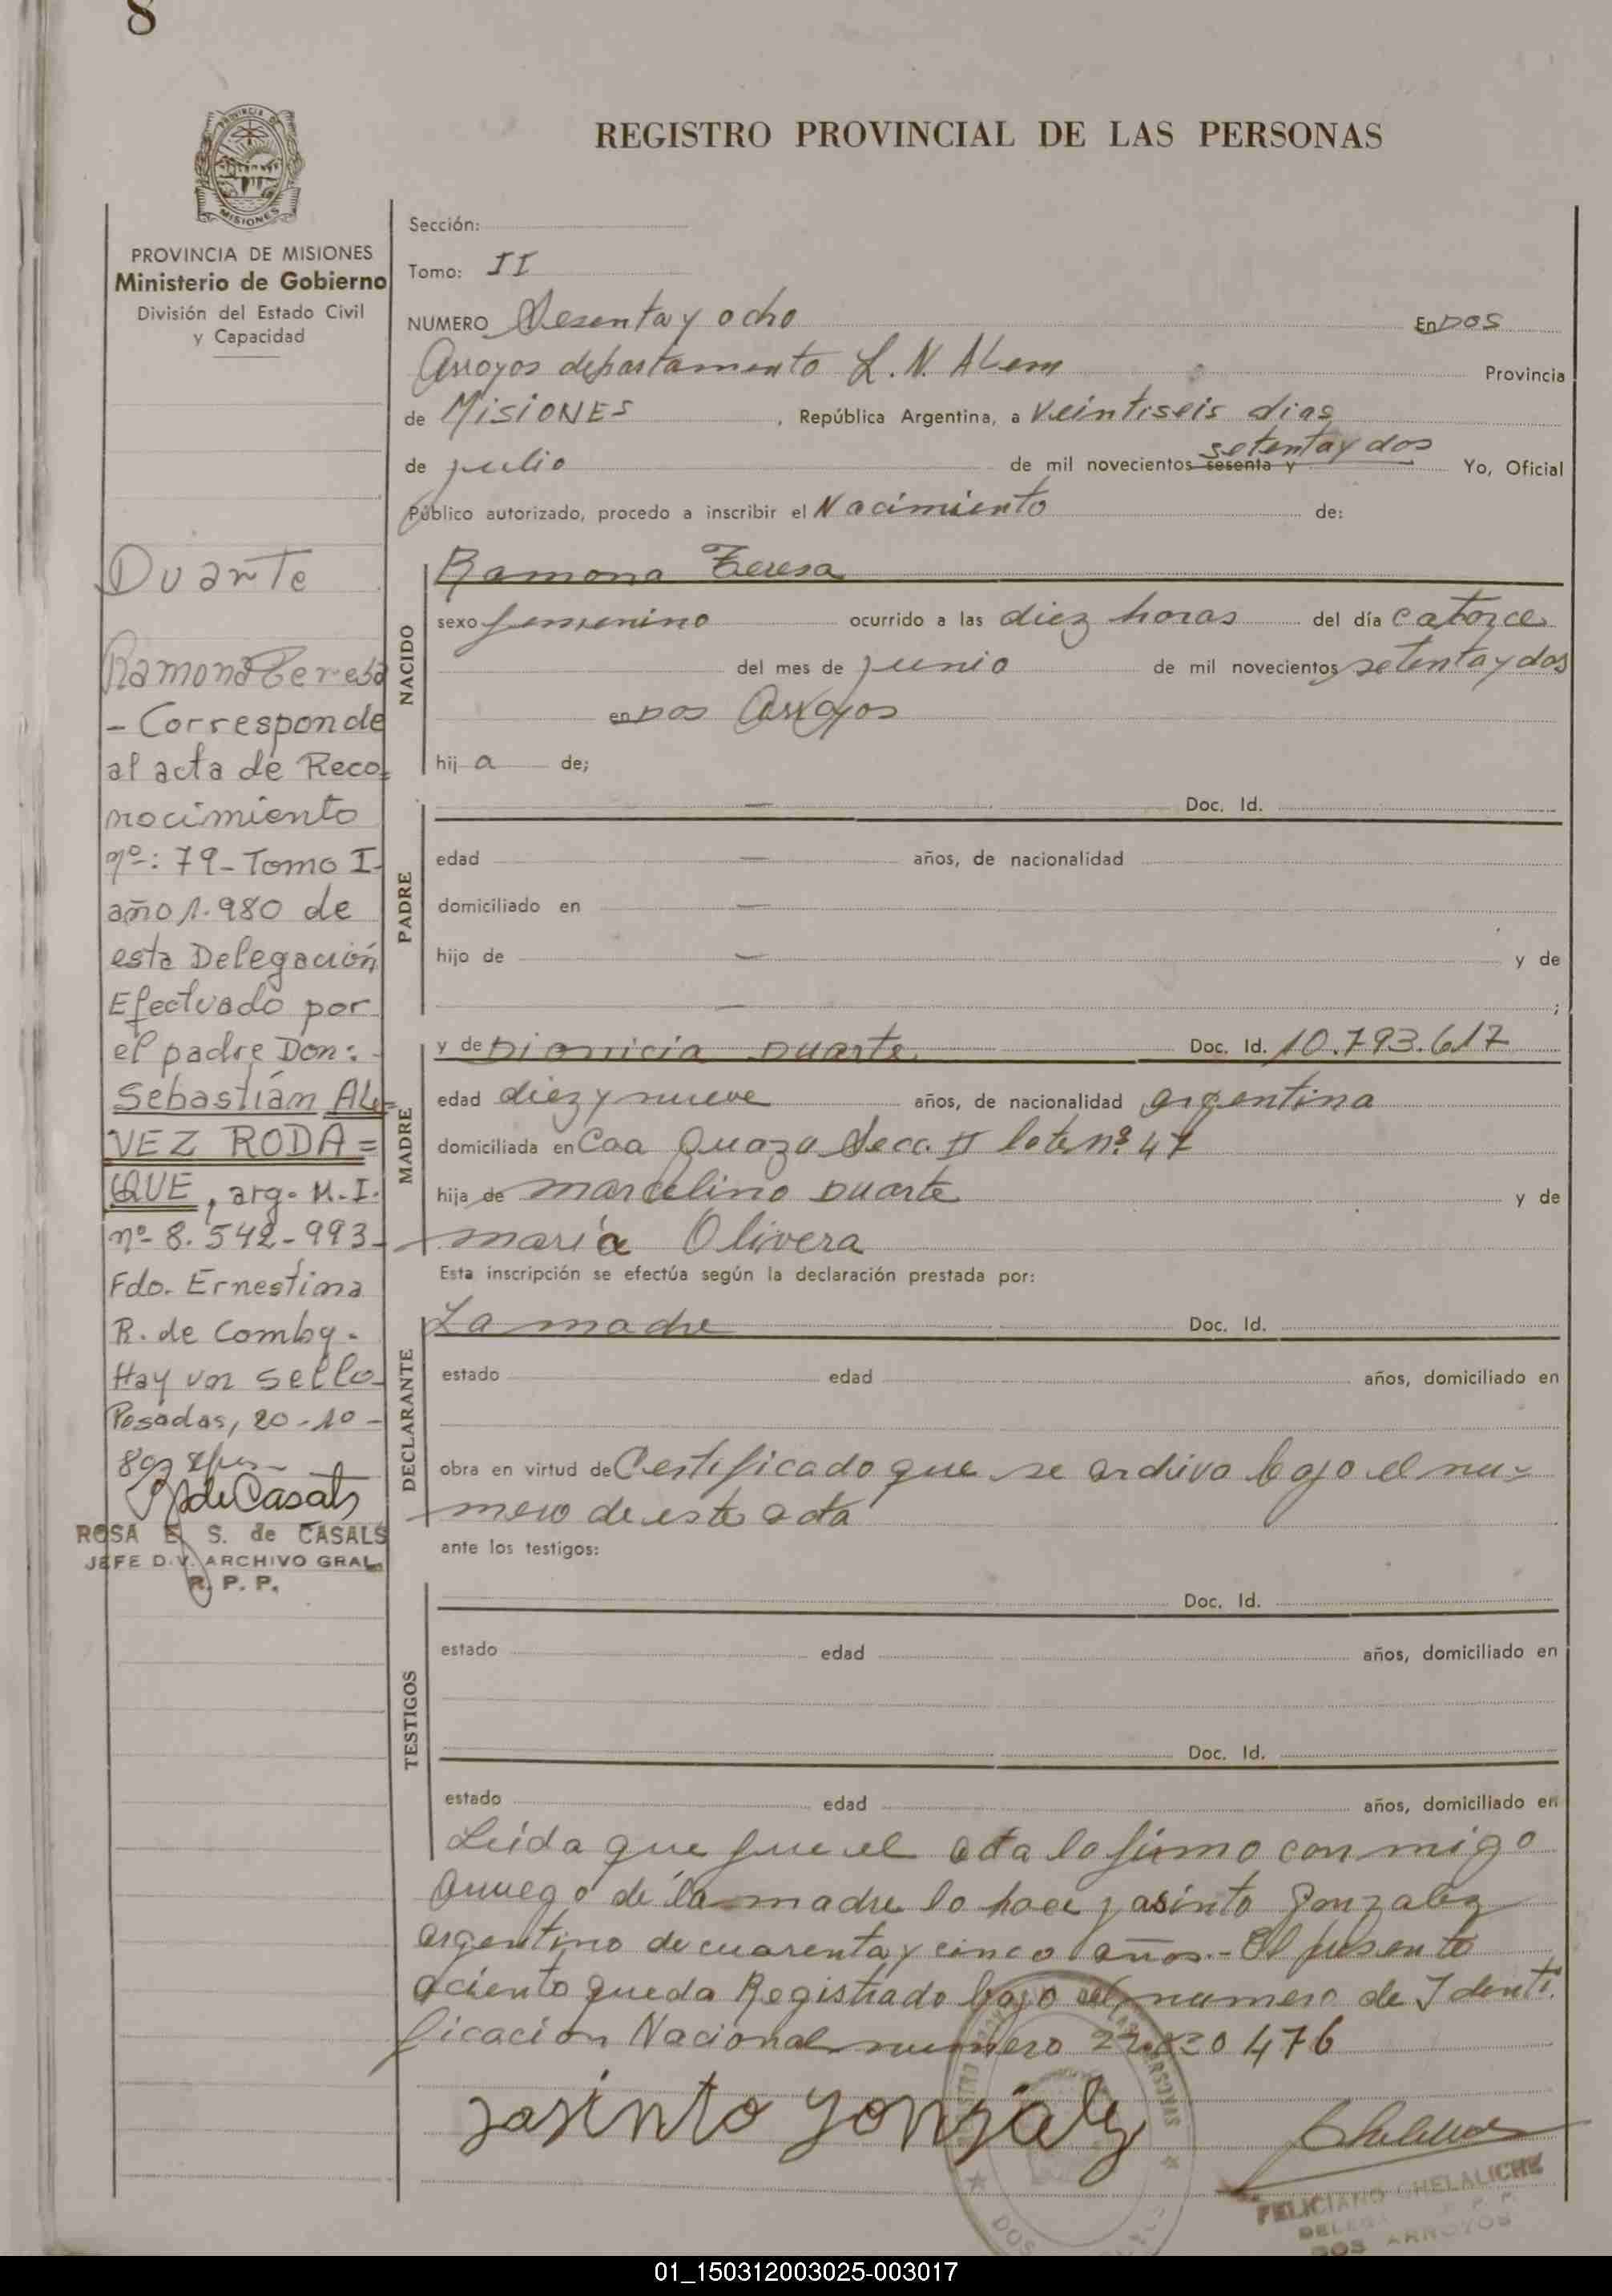 8
REGISTRO PROVINCIAL DE LAS PERSONAS
PROVINCIA DE MISIONES
Ministerio de Gobierno
División del Estado Civil
y Capacidad
Duarte
Ramona Teresa
- Corresponde
al acta de Reco=
nocimiento
nº: 79- Tomo I-
año 1.980 de
esta Delegación
Efectuado por
el padre Don:
Sebastián AL=
VEZ RODA=
QUE, arg. M.I.
nº- 8.542-993-
Fdo. Ernestina
R. de Comby.
Hay un sello-
Posadas, 20-10-
ROSA E. S. de CASALS
JEFE DIV. ARCHIVO GRAL.
R. P. P.
Sección:
Tomo: II
NUMERO Sesenta y ocho En DOS
Arroyos departamento L.N. Alem Provincia
de MISIONES, República Argentina, a veintiseis dias
de julio de mil novecientos sesenta y setenta y dos Yo, Oficial
Público autorizado, procedo a inscribir el Nacimiento de:
NACIDO
Ramona Teresa
sexo femenino ocurrido a las diez horas del día catorce
del mes de junio de mil novecientos setenta y dos
en DOS Arroyos
hij a de;
PADRE
— Doc. Id.
edad — años, de nacionalidad
domiciliado en —
hijo de — y de
— ;
MADRE
y de Dionicia Duarte Doc. Id. 10.793.617
edad diez y nueve años, de nacionalidad argentina
domiciliada en Caa Guazu Secc. II lote nº 47
hija de marcelino Duarte y de
maria Olivera
Esta inscripción se efectúa según la declaración prestada por:
DECLARANTE
La madre Doc. Id.
estado edad años, domiciliado en
obra en virtud de Certificado que se archiva bajo el nu=
mero de este acta
ante los testigos:
TESTIGOS
Doc. Id.
estado edad años, domiciliado en
Doc. Id.
estado edad años, domiciliado en
Leida que fue el acta la firmo conmigo
Arruego de la madre lo hace jasinto Gonzalez
argentino de cuarenta y cinco años.- El presente
aciento queda Registrado bajo el numero de Identi.
ficación Nacional numero 476
jasinto gonzalez
FELICIANO CHELALICHE
DOS ARROYOS
01_150312003025-003017